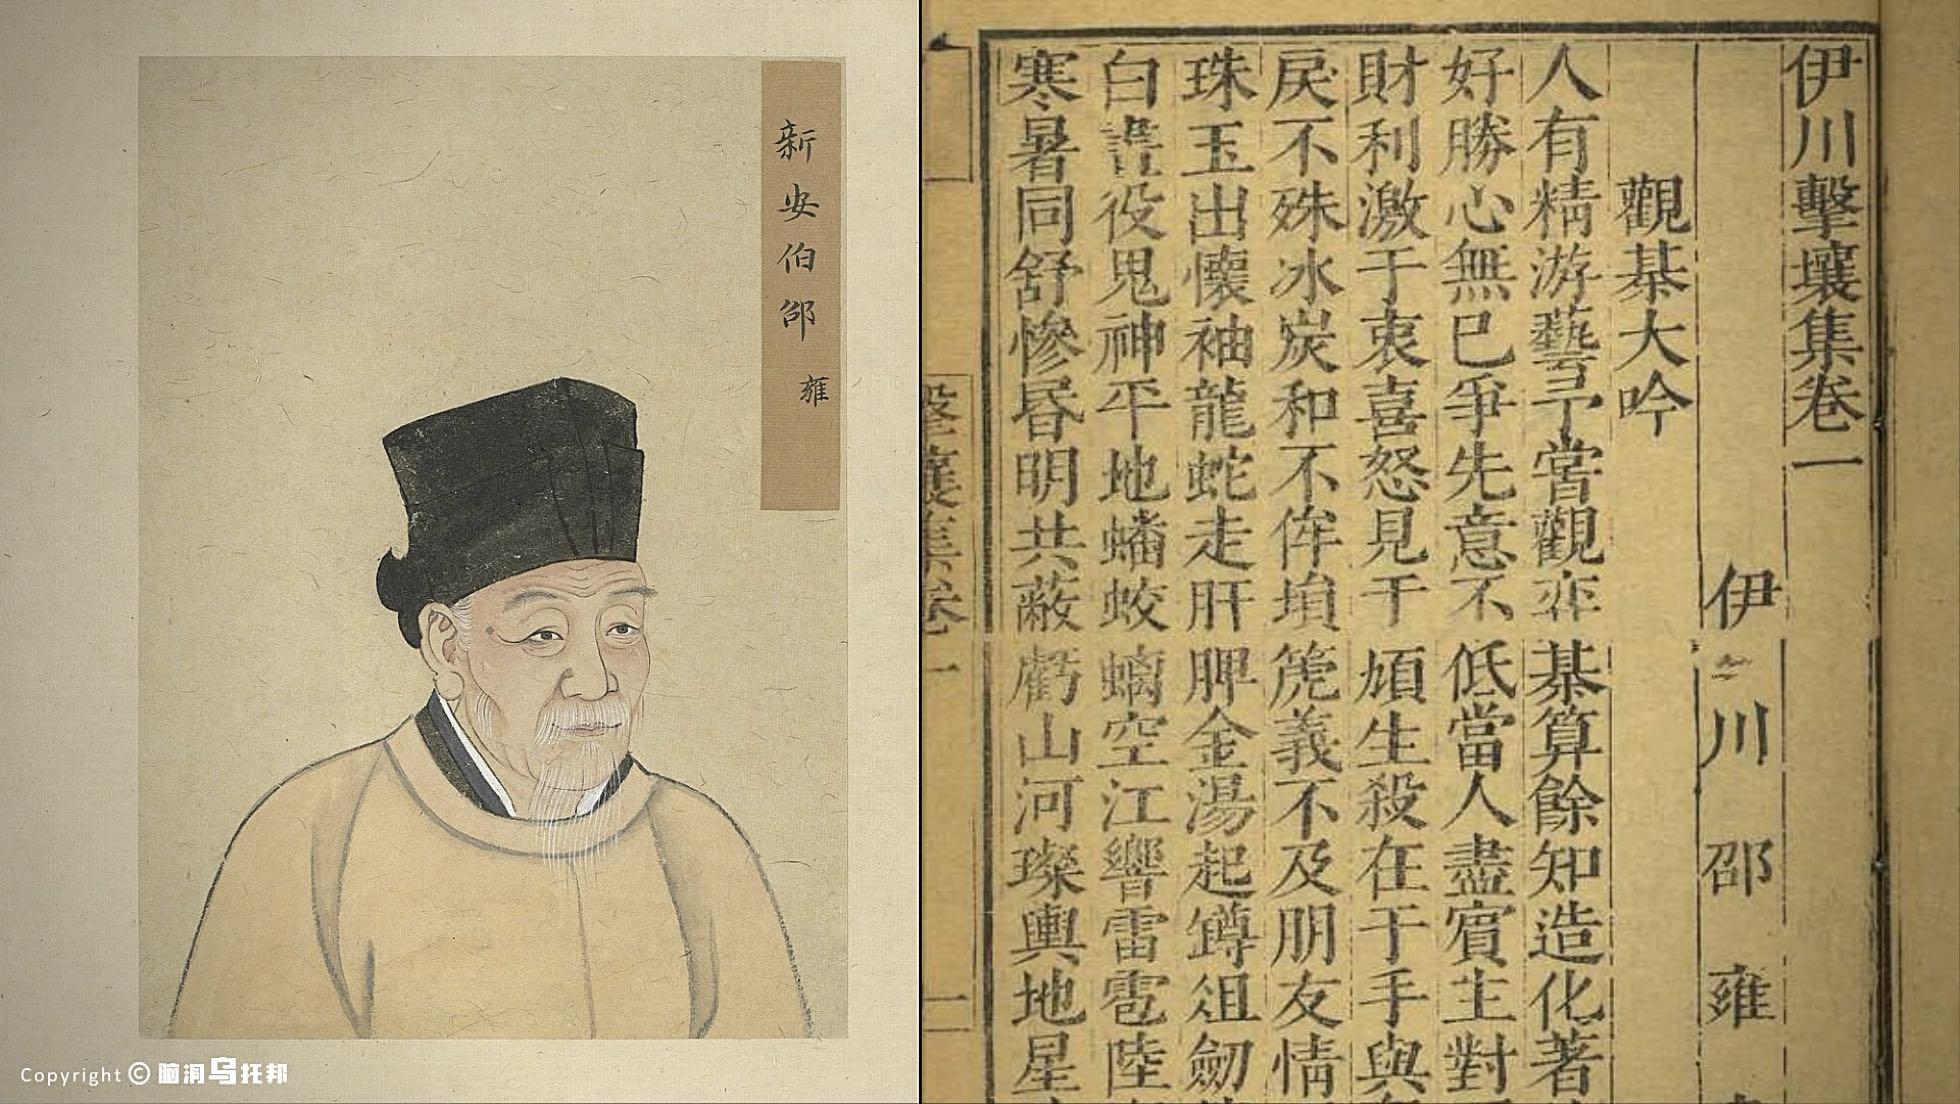 新安伯邵雍
伊川擊壤集卷一
伊川邵雍
觀棊大吟
人有精游藝予甞觀弈棊算餘知造化著
好勝心無已爭先意不低當人盡賓主對
財利激于衷喜怒見于頄生殺在于手與
戾不殊冰炭和不侔塤篪義不及朋友情
珠玉出懷袖龍蛇走肝脾金湯起罇俎劒
白晝役鬼神平地蟠蛟螭空江響雷雹陸
寒暑同舒慘昏明共蔽虧山河璨輿地星
擊壤集卷一
一
Copyright © 脑洞乌托邦